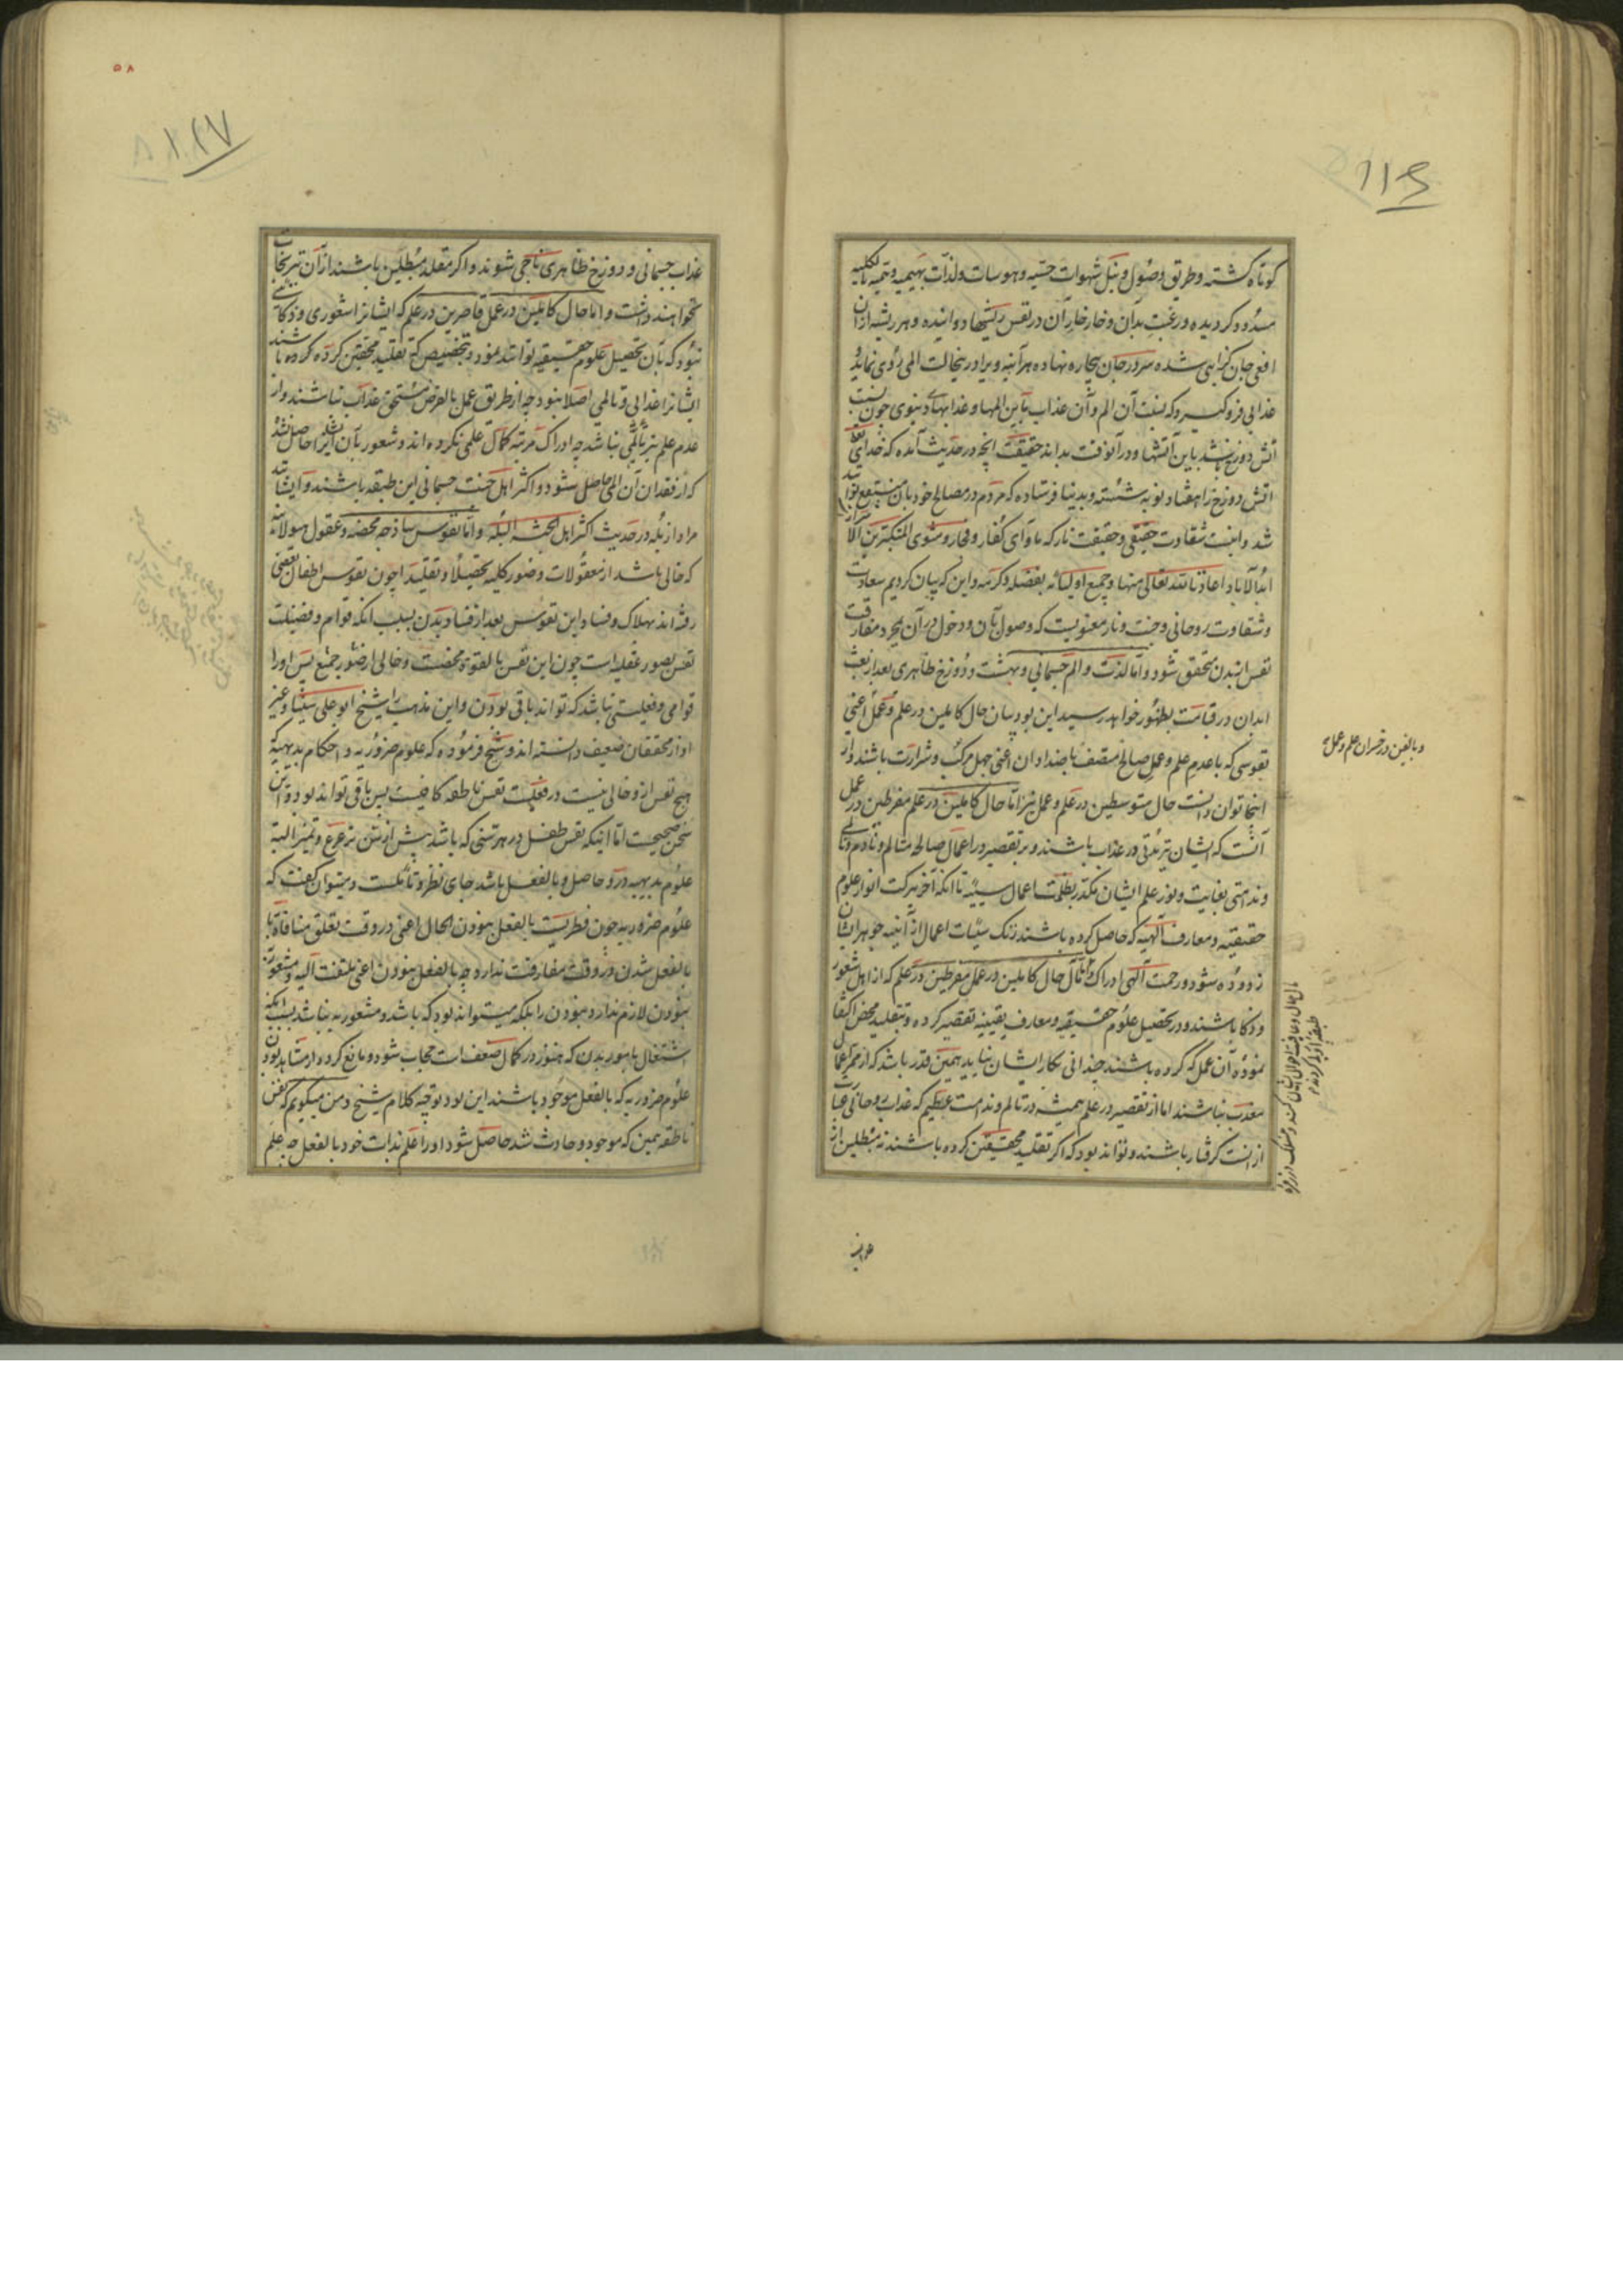 کوتاه گشته و طریق وصول و نیل شهوات حسیه و هوسات و لذات بهیمیه وهمیه بالکلیه
مسدود گردیده و رغبت بدان و خارخار آن در نفس ریشها دوانیده و هر ریشه از آن
افعی جان گزایی شده سر در جان بیچاره نهاده هر آینه ویرا در ینحالت المی روی نماید و
عذابی فرو گیرد که نسبت آن الم و آن عذاب باین المها و عذابهای دنیوی چون نسبت
آتش دوزخ باشد باین آتشها و در آنوقت بداند حقیقت آنچه در حدیث آمده که خدای تعالی
آتش دوزخ را هفتاد نوبه شسته و بدنیا فرستاده که مردم در مصالح خود بآن منتفع توانند
شد و اینست شقاوت حقیقی و حقیقت نار که ماوای کفار و فجار و مثوی المتکبرین
ابدالآباد اعاذنا الله تعالی منها و جمیع اولیائه بفضله و کرمه و این که بیان کردیم سعادت
و شقاوت روحانی و جنت و نار معنویست که وصول بآن و دخول در آن بمجرد مفارقت
نفس از بدن متحقق شود و اما لذت و الم جسمانی و بهشت و دوزخ ظاهری بعد از بعث
ابدان در قیامت بظهور خواهد رسید این بود بیان حال کاملین در علم و عمل اعنی
نفوسی که با عدم علم و عمل صالح متصف باضداد آن اعنی جهل مرکب و شرارت باشند و از
اینجا توان دانست حال متوسطین در علم و عمل نیز اما حال کاملین در علم مفرطین در عمل
آنست که ایشان نیز مدتی در عذاب باشند و بر تقصیر در اعمال صالحه متالم و نادم
و ندامتی بغایت و نور علم ایشان مکدر بظلمت اعمال سیئه تا آنکه آخر ببرکت انوار علوم
حقیقیه و معارف الهیه که حاصل کرده باشند زنگ سیئات اعمال از آینه جوهر ایشان
زدوده شود و رحمت الهی ادراک و اما حال کاملین در عمل مفرطین در علم که از اهل شعور
و ذکا باشند و در تحصیل علوم حقیقیه و معارف یقینیه تقصیر کرده و بتقلید محض اکتفا
نموده آن عمل که کرده باشند چندانی بکار ایشان نیاید همین قدر باشد که از ممر اعمال
معذب نباشند اما از تقصیر در علم همیشه در تالم و ندامت عظیم که عذاب روحانی عبارت
از آنست گرفتار باشند و تواند بود که اگر تقلید محققین کرده باشند نه مبطلین از
و بالغین در خسران علم و عمل
عذاب
عذاب جسمانی و دوزخ ظاهری ناجی شوند و اگر مقلد مبطلین باشند از آن نیز نجات
نخواهند داشت و اما حال کاملین در عمل قاصرین در علم که ایشانرا شعوری و ذکائی
نبود که بآن تحصیل علوم حقیقیه توانند نمود و بتخصیص که تقلید محققین کرده باشند
ایشانرا عذابی و تالمی اصلا نبود چه از طریق عمل بالفرض مستحق عذاب نباشند و از
عدم علم نیز تالمی نباشد چه ادراک مرتبه کمال علمی نکرده اند و شعور بآن ایشانرا حاصل نشده
که از فقدان آن المی حاصل شود و اکثر اهل جنت جسمانی این طبقه باشند و ایشانند
مراد از بله در حدیث اکثر اهل الجنة البله و اما نفوس ساذجه محضه و عقول هیولانیه
که خالی باشد از معقولات و صور کلیه تحصیلا و تقلیدا چون نفوس اطفال بعضی
رفته اند بهلاک و فساد این نفوس بعد از فساد بدن بسبب آنکه قوام و فضیلت
نفس بصور عقلیه است چون این نفس بالقوة محضست و خالی از صور جمیع پس او را
قوامی و فعلیتی نباشد که تواند باقی بودن و این مذهب را شیخ ابو علی سینا و غیر
او از محققان ضعیف دانسته اند و شیخ فرموده که علوم ضروریه و احکام بدیهیه که
هیچ نفس از و خالی نیست در فعلیت نفس ناطقه کافیست پس باقی تواند بود و این
سخن صحیحست اما اینکه نفس طفل در هر سنی که باشد پیش از سن ترعرع و تمیز البته
علوم بدیهیه در و حاصل و بالفعل باشد جای نظر و تاملست و میتوان گفت که
علوم ضروریه چون فطریست بالفعل نبودن الحال اعنی در وقت تعلق منافات با
بالفعل شدن در وقت مفارقت ندارد چه بالفعل نبودن اعنی ملتفت الیه و مشعور به
نبودن لازم ندارد نبودن را بلکه میتواند بود که باشد و مشعور به نباشد بسبب آنکه
اشتغال بامور بدن که هنوز در کمال ضعف است حجاب شود و مانع گردد از مشاهد بودن
علوم ضروریه که بالفعل موجود باشند این بود توجیه کلام شیخ و من میگویم که نفس
ناطقه همین که موجود و حادث شد حاصل شود او را علم بذات خود بالفعل چه علم